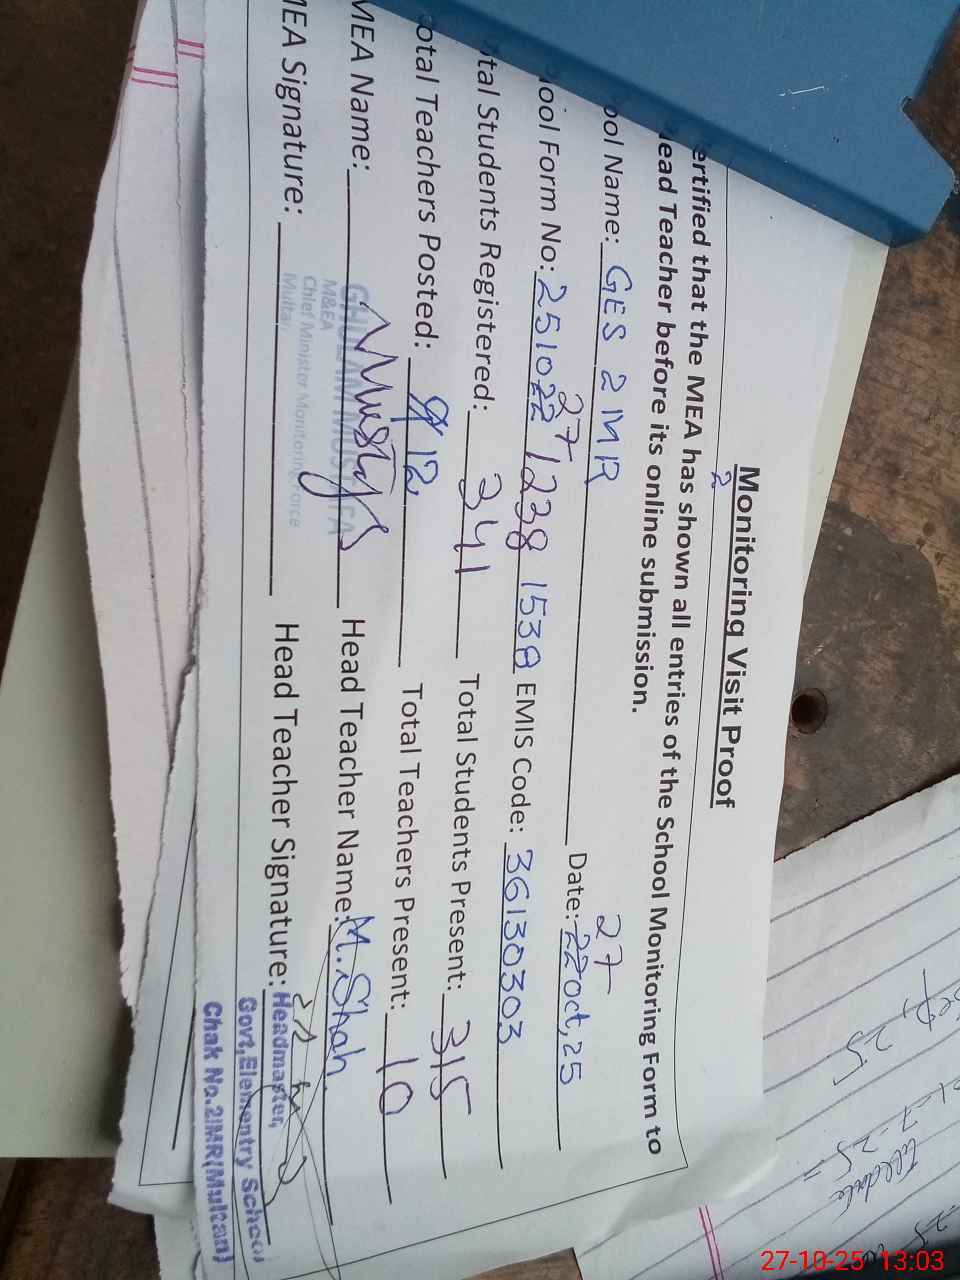 Monitoring Visit Proof
2
ertified that the MEA has shown all entries of the School Monitoring Form to
Head Teacher before its online submission.
ool Name: GES 2 MR Date: 22 oct, 25
27
27
ool Form No: 251022 1238 1538 EMIS Code: 36130303
tal Students Registered: 341 Total Students Present: 315
otal Teachers Posted: 12 Total Teachers Present: 10
MEA Name: Head Teacher Name: M. Shah
GHULAM MUSTAFA
M&EA
Chief Minister Monitoring Force
Multan
MEA Signature: Head Teacher Signature:
Headmaster,
Govt, Elementry School
Chak No. 2/MR(Multan)
25
27-10-25 13:03